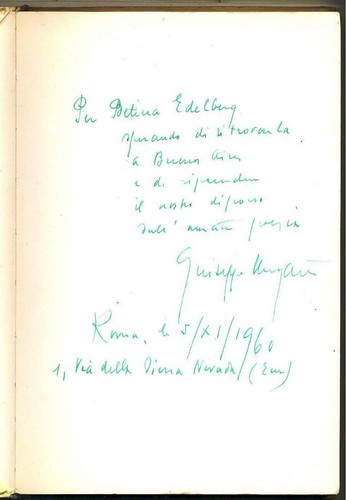 Per Betina Edelberg
sperando di ritrovarla
a Buenos Aires
e di riprendere
il nostro discorso
sull'amata poesia
Giuseppe Ungaretti
Roma, le 5/XI/1960
1, Via della Sierra Nevada (Eur)